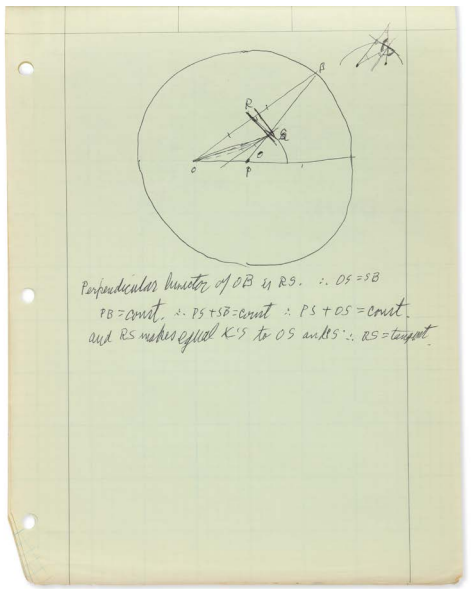 B
R
S
O
P
θ
Perpendicular bisector of OB is RS. ∴ OS = SB
PB = const. ∴ PS + SB = const ∴ PS + OS = const.
and RS makes equal ∠'s to OS and PS ∴ RS = tangent.